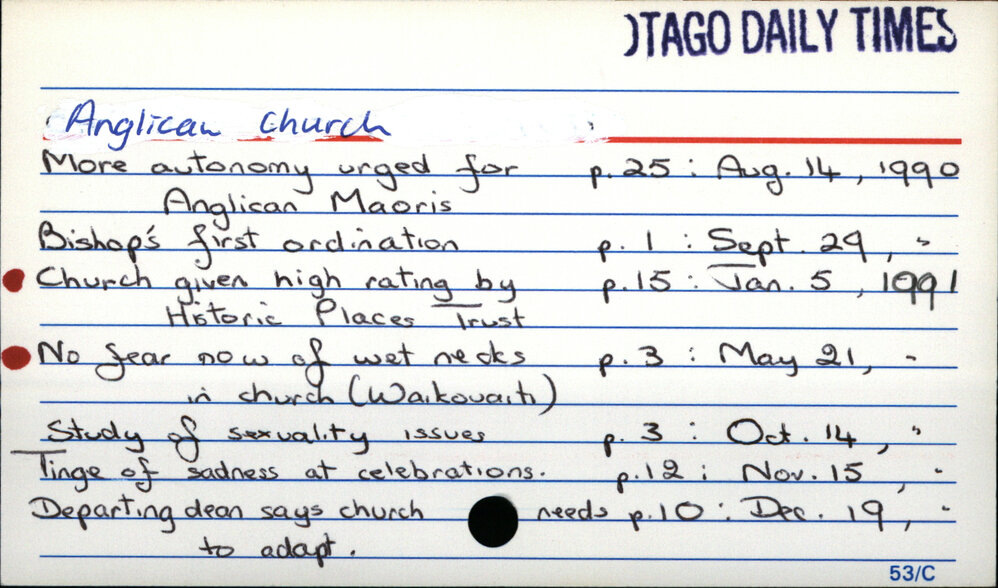 OTAGO DAILY TIMES
Anglican Church
More autonomy urged for p. 25 : Aug. 14, 1990
Anglican Maoris
Bishop's first ordination p. 1 : Sept. 29, "
Church given high rating by p. 15 : Jan. 5, 1991
Historic Places Trust
No fear now of wet necks p. 3 : May 21, "
in church (Waikouaiti)
Study of sexuality issues p. 3 : Oct. 14, "
Tinge of sadness at celebrations. p. 12 : Nov. 15, "
Departing dean says church needs p. 10 : Dec. 19, "
to adapt.
53/C